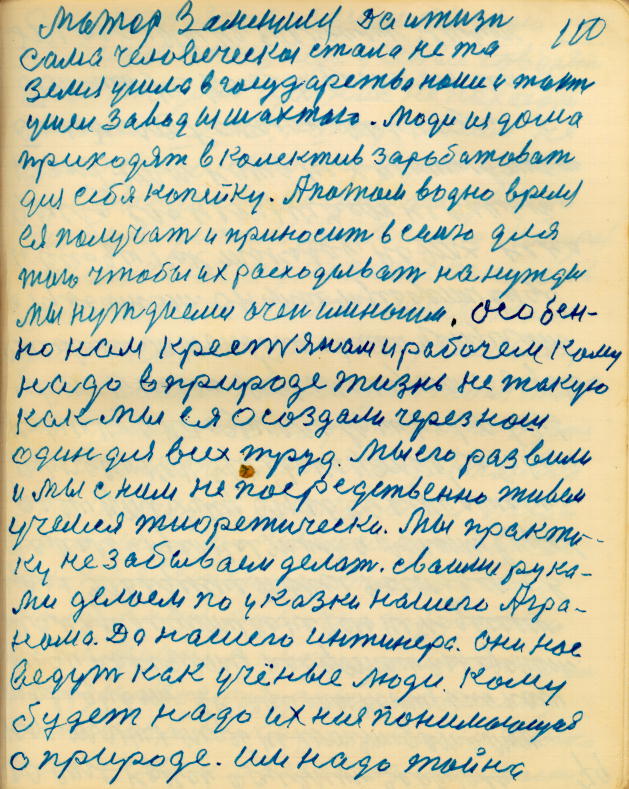 мотор Заменил Да и жизн 100
сама человеческая стала не та
Земля ушла в государство наши и
ушли Заводы шахтыю. Люди из дома
приходят в Колектив Зарабатоват
для себя копейку. А потом водно время
ея получат и приносит в семю для
того чтобы их расходыват на нужды
мы нуждаеми очен многим. Особен-
но нам крестянам и рабочем Кому
надо в природе жизнь не такую
Как мы ея осоздали через наш
один для всех труд. Мы его развили
и мы с ним непосредственно живем
учемся тиоретически. Мы практи-
ку не забываем делат. сваими рука-
ми делаем по указки нашего Агра-
нома. Да нашего интинера. они нас
ведут как учёные люди. Кому
будет надо ихния понимающия
о природе. им надо тайна